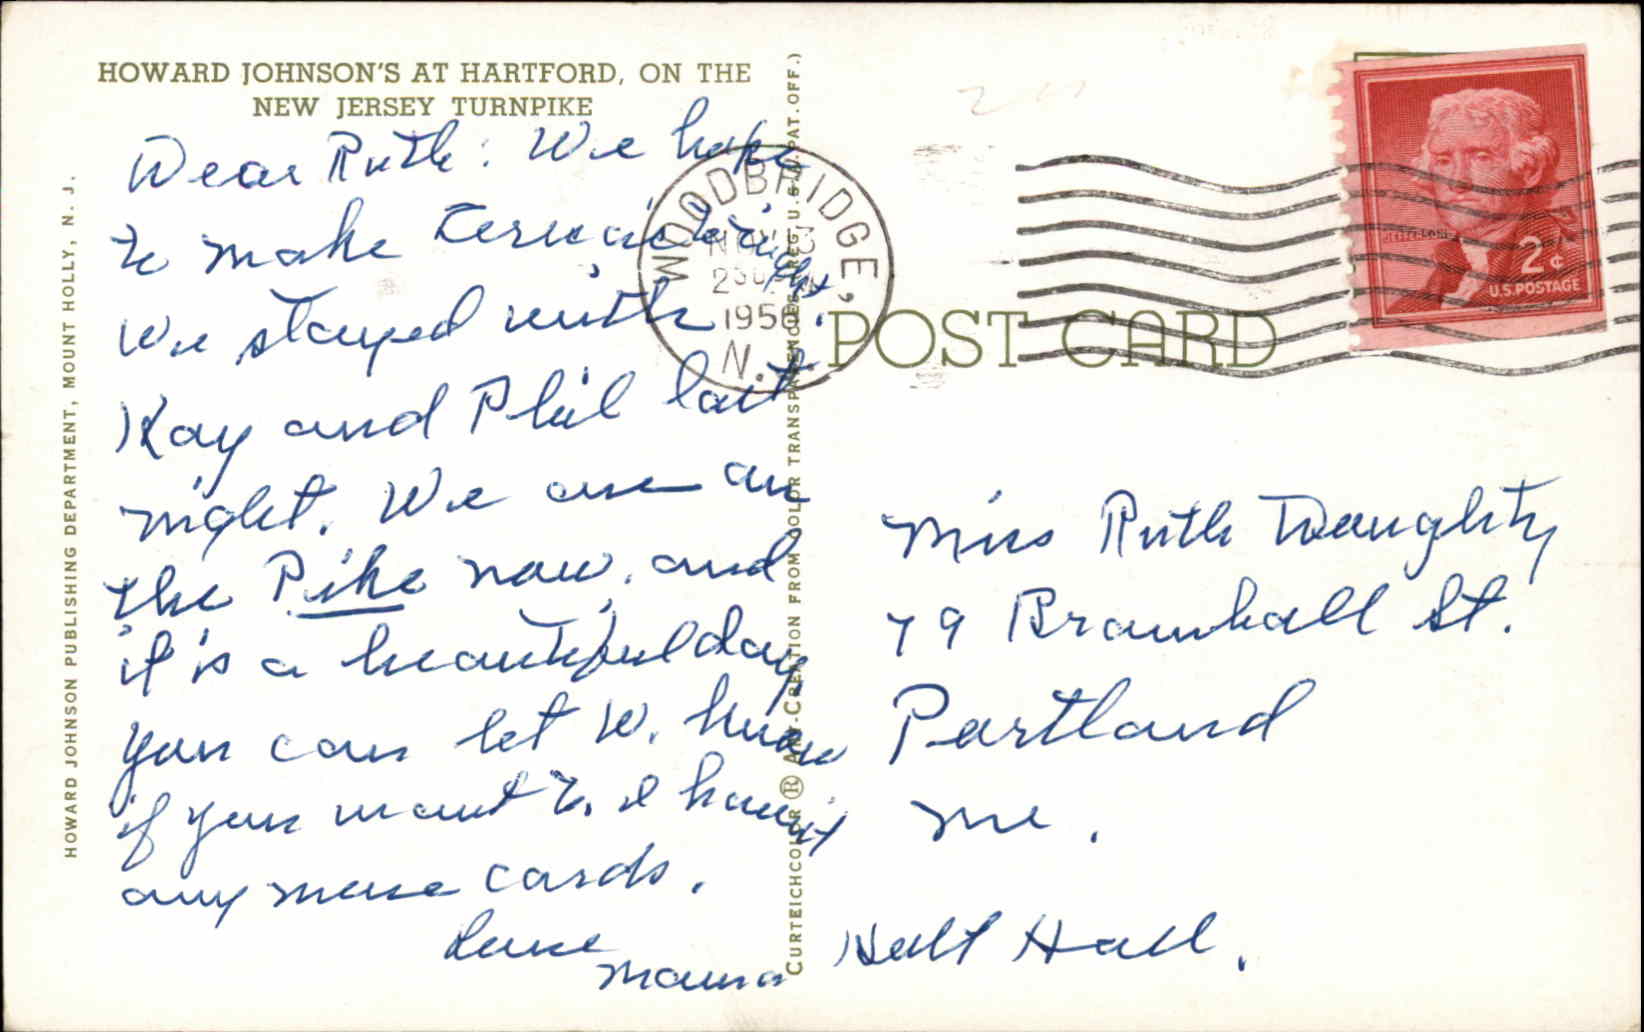 HOWARD JOHNSON'S AT HARTFORD, ON THE
NEW JERSEY TURNPIKE
Dear Ruth: We hope
to make
We stayed with
Kay and Phil last
night. We are on
the Pike now, and
it's a beautiful day
You can let W. know
if you want to. I haven't
any more cards.
Love
Mama
HOWARD JOHNSON PUBLISHING DEPARTMENT, MOUNT HOLLY, N. J.
CURTEICHCOLOR ® ART-CREATION FROM COLOR TRANSPARENCIES (REG. U.S. PAT. OFF.)
WOODBRIDGE,
NOV
1956
N.
POST CARD
JEFFERSON
2¢
U.S. POSTAGE
Miss Ruth Doughty
79 Bramhall St.
Portland
Me.
Holt Hall.